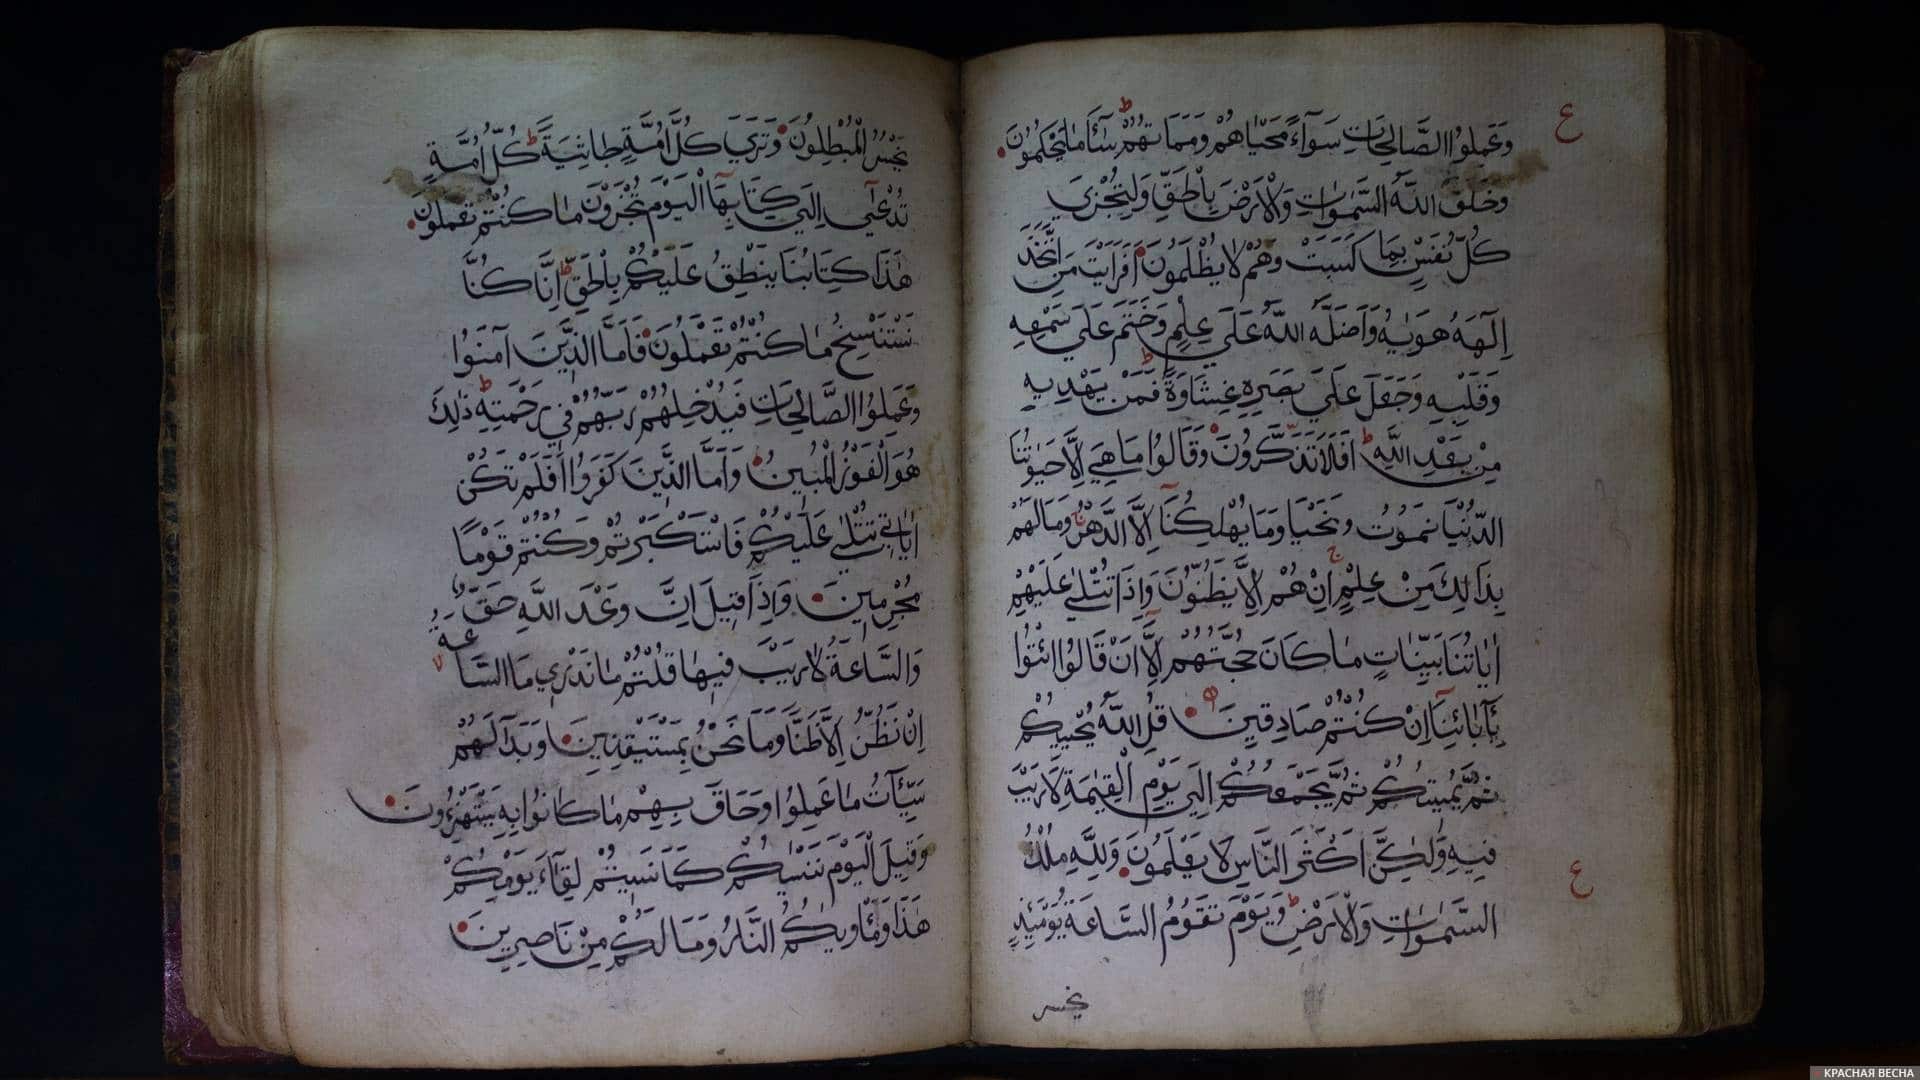 وَعَمِلُوا الصَّالِحَاتِ سَوَآءً مَحْيَاهُمْ وَمَمَاتُهُمْ ط سَآءَ مَا يَحْكُمُونَ
وَخَلَقَ اللَّهُ السَّمٰوَاتِ وَالْاَرْضَ بِالْحَقِّ وَلِتُجْزٰي
كُلُّ نَفْسٍ بِمَا كَسَبَتْ وَهُمْ لَا يُظْلَمُونَ اَفَرَاَيْتَ مَنِ اتَّخَذَ
اِلٰهَهُ هَوٰيهُ وَاَضَلَّهُ اللَّهُ عَلَي عِلْمٍ وَخَتَمَ عَلَي سَمْعِهِ
وَقَلْبِهِ وَجَعَلَ عَلَي بَصَرِهِ غِشَاوَةً ط فَمَنْ يَهْدِيهِ
مِنْ بَعْدِ اللَّهِ ط اَفَلَا تَذَكَّرُونَ وَقَالُوا مَا هِيَ اِلَّا حَيٰوتُنَا
الدُّنْيَا نَمُوتُ وَنَحْيَا وَمَا يُهْلِكُنَا اِلَّا الدَّهْرُ ج وَمَا لَهُمْ
بِذٰلِكَ مِنْ عِلْمٍ ج اِنْ هُمْ اِلَّا يَظُنُّونَ وَاِذَا تُتْلٰي عَلَيْهِمْ
اٰيَاتُنَا بَيِّنَاتٍ مَا كَانَ حُجَّتَهُمْ اِلَّا اَنْ قَالُوا ائْتُوا
بِاٰبَائِنَا اِنْ كُنْتُمْ صَادِقِينَ قُلِ اللَّهُ يُحْيِيكُمْ
ثُمَّ يُمِيتُكُمْ ثُمَّ يَجْمَعُكُمْ اِلَي يَوْمِ الْقِيٰمَةِ لَا رَيْبَ
فِيهِ وَلٰكِنَّ اَكْثَرَ النَّاسِ لَا يَعْلَمُونَ وَلِلَّهِ مُلْكُ
السَّمٰوَاتِ وَالْاَرْضِ ط وَيَوْمَ تَقُومُ السَّاعَةُ يَوْمَئِذٍ
يخسر
ع
ع
يَخْسَرُ الْمُبْطِلُونَ وَتَرَي كُلَّ اُمَّةٍ جَاثِيَةً ط كُلُّ اُمَّةٍ
تُدْعٰي اِلَي كِتَابِهَا الْيَوْمَ تُجْزَوْنَ مَا كُنْتُمْ تَعْمَلُونَ
هٰذَا كِتَابُنَا يَنْطِقُ عَلَيْكُمْ بِالْحَقِّ ط اِنَّا كُنَّا
نَسْتَنْسِخُ مَا كُنْتُمْ تَعْمَلُونَ فَاَمَّا الَّذِينَ اٰمَنُوا
وَعَمِلُوا الصَّالِحَاتِ فَيُدْخِلُهُمْ رَبُّهُمْ فِي رَحْمَتِهِ ط ذٰلِكَ
هُوَ الْفَوْزُ الْمُبِينُ وَاَمَّا الَّذِينَ كَفَرُوا اَفَلَمْ تَكُنْ
اٰيَاتِي تُتْلٰي عَلَيْكُمْ فَاسْتَكْبَرْتُمْ وَكُنْتُمْ قَوْمًا
مُجْرِمِينَ وَاِذَا قِيلَ اِنَّ وَعْدَ اللَّهِ حَقٌّ
وَالسَّاعَةُ لَا رَيْبَ فِيهَا قُلْتُمْ مَا نَدْرِي مَا السَّاعَةُ
اِنْ نَظُنُّ اِلَّا ظَنًّا وَمَا نَحْنُ بِمُسْتَيْقِنِينَ وَبَدَا لَهُمْ
سَيِّئَاتُ مَا عَمِلُوا وَحَاقَ بِهِمْ مَا كَانُوا بِهِ يَسْتَهْزِءُونَ
وَقِيلَ الْيَوْمَ نَنْسٰيكُمْ كَمَا نَسِيتُمْ لِقَآءَ يَوْمِكُمْ
هٰذَا وَمَاْوٰيكُمُ النَّارُ وَمَا لَكُمْ مِنْ نَاصِرِينَ
КРАСНАЯ ВЕСНА